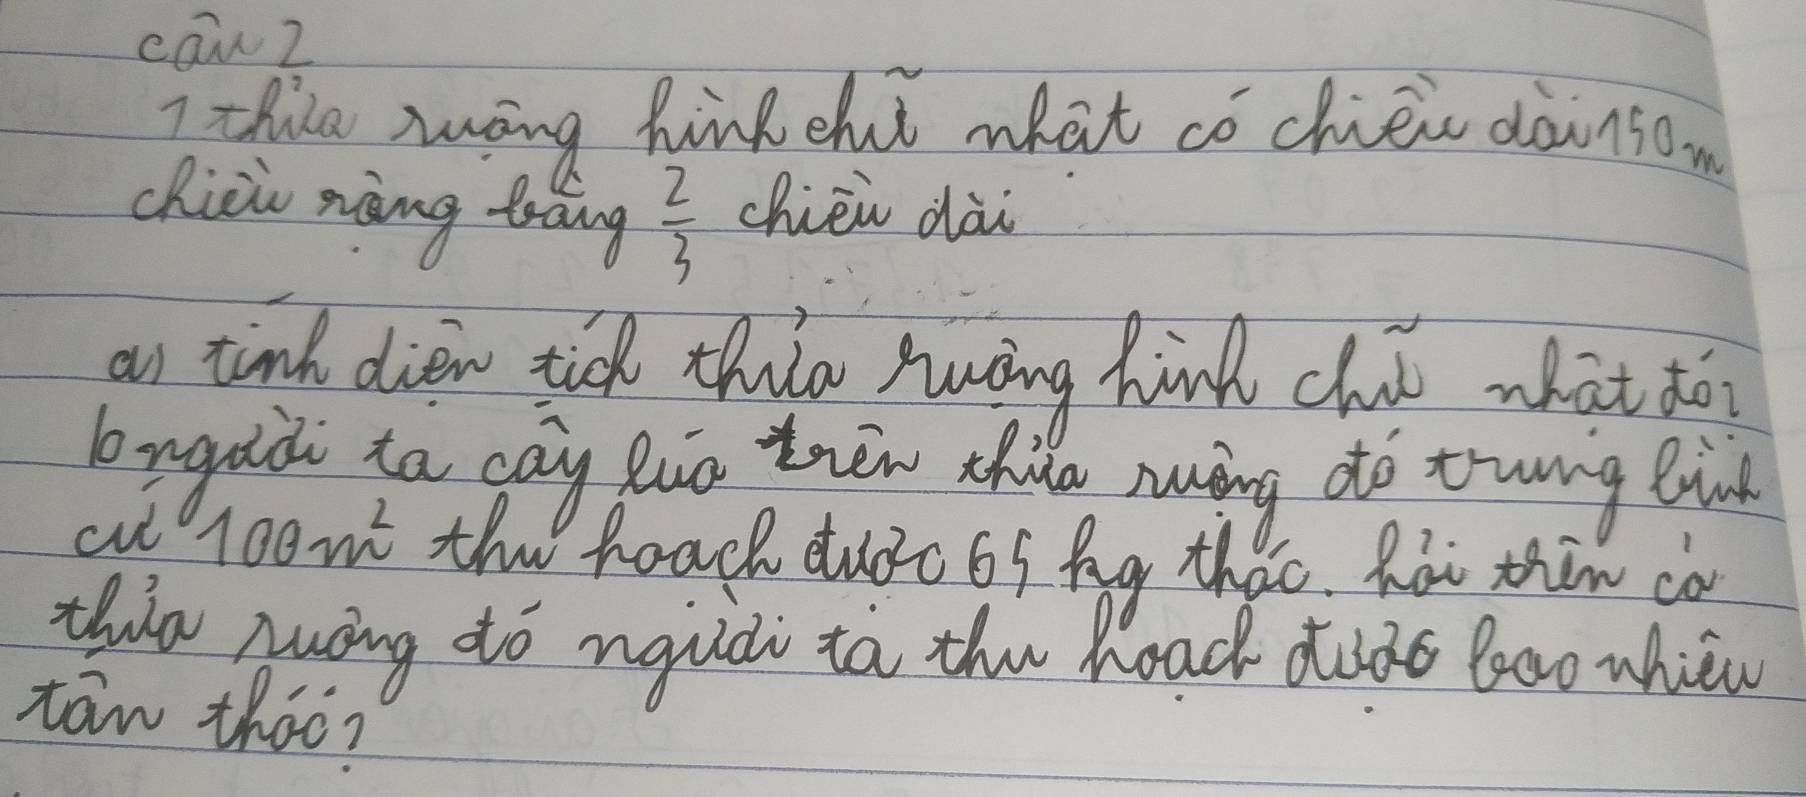 câu 2
1 thửa ruộng hình chữ nhật có chiều dài 150m
chiều rộng bằng 2/3 chiều dài
a) tính diện tích thửa ruộng hình chữ nhật đó?
b người ta cấy lúa trên thửa ruộng đó trung bình
cứ 100m² thu hoạch được 65 kg thóc. hỏi trên cả
thửa ruộng đó người ta thu hoạch được bao nhiêu
tấn thóc?